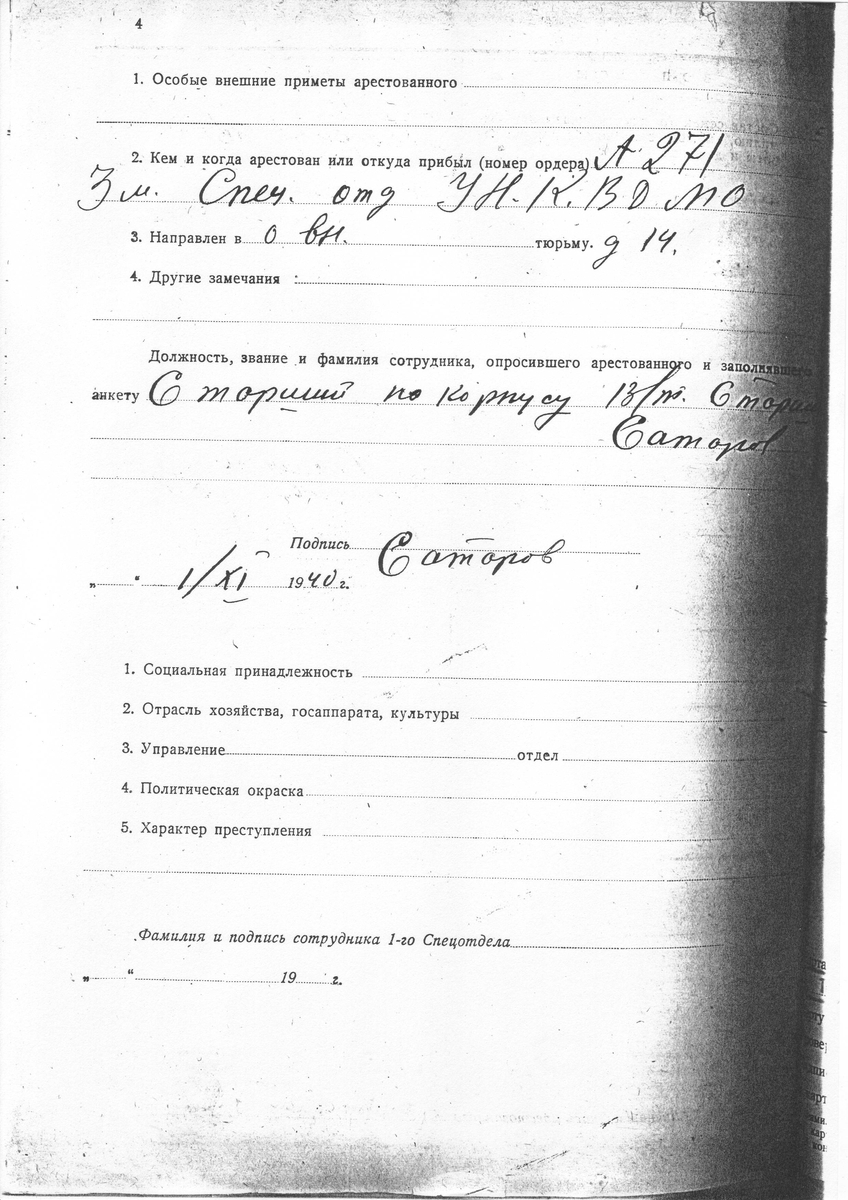 4
1. Особые внешние приметы арестованного
2. Кем и когда арестован или откуда прибыл (номер ордера) А 271
3 м. Спец. отд УН.К.ВД МО
3. Направлен в о вн. тюрьму. д 14.
4. Другие замечания :
Должность, звание и фамилия сотрудника, опросившего арестованного и заполнявшего
анкету Сторший по корпусу В/т. Сторши
Саторов
Подпись Саторов
„ “ 1/XI 1940 г.
1. Социальная принадлежность
2. Отрасль хозяйства, госаппарата, культуры
3. Управление отдел
4. Политическая окраска
5. Характер преступления
Фамилия и подпись сотрудника 1-го Спецотдела
„ “ 19 г.